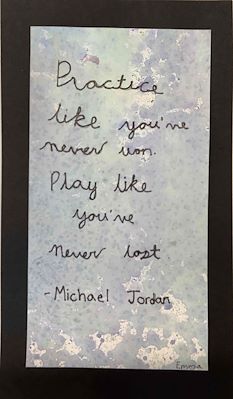 Practice
like you've
never won.
Play like
you've
never lost.
-Michael Jordan
Emma